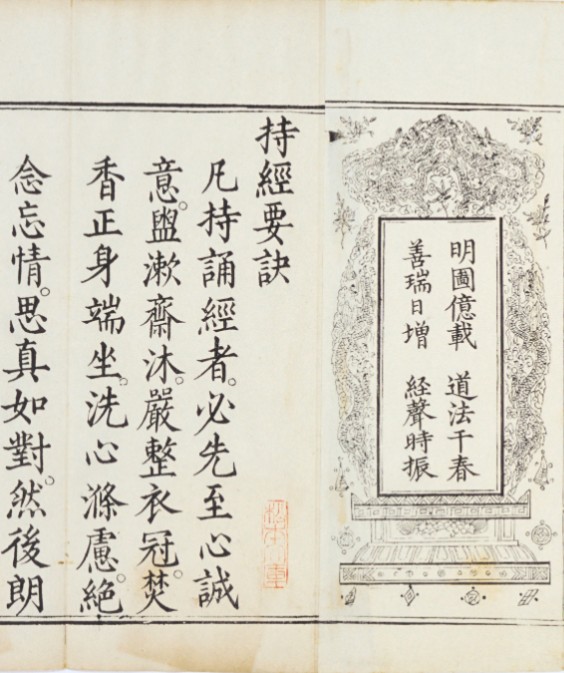 明圖億載　道法千春
善瑞日增　経聲時振
持經要訣
凡持誦經者。必先至心誠
意。盥漱齋沐。嚴整衣冠。焚
香正身端坐。洗心滌慮。絕
念忘情。思真如對。然後朗